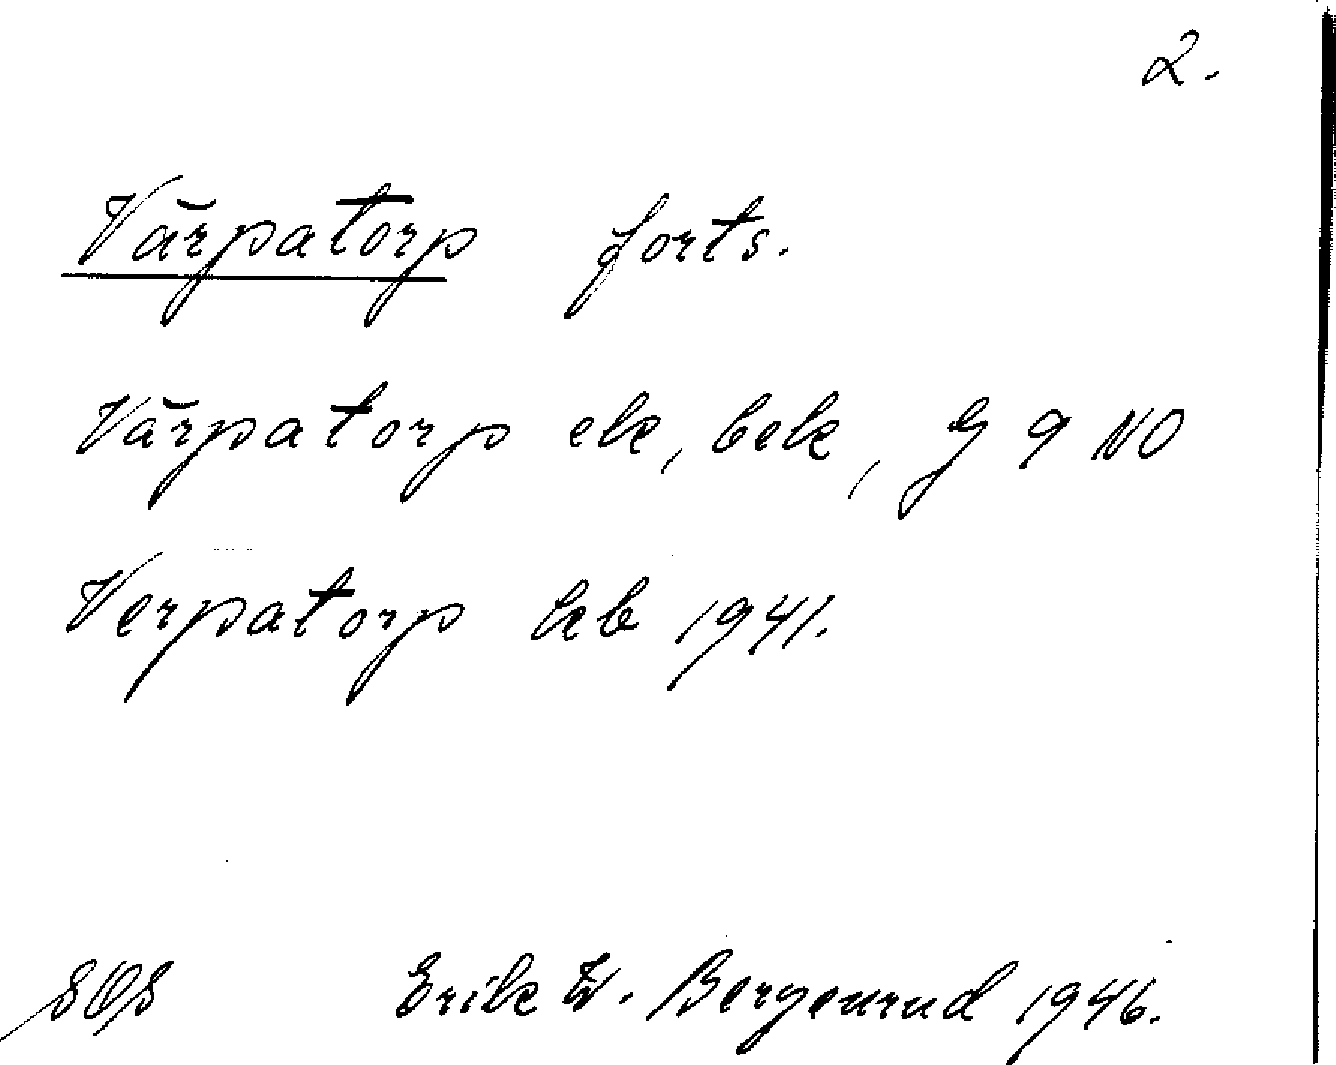 2.
Värpatorp forts.
Värpatorp ek, bek, G 9 NO
Verpatorp kb 1941.
SOS Erik W. Bergenrud 1946.